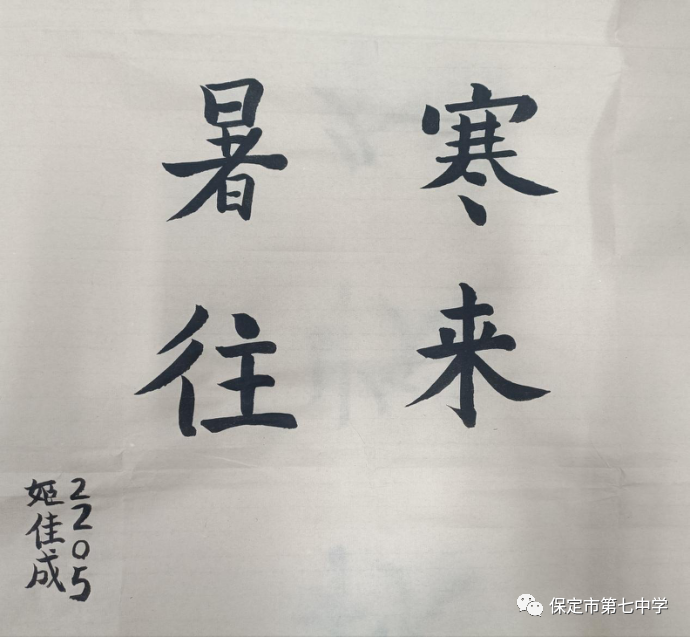 寒来
暑往
2205
姬佳成
保定市第七中学